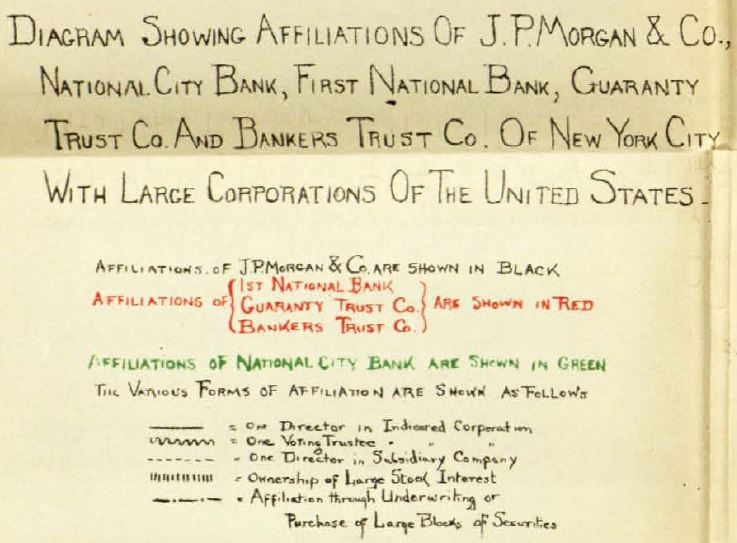 DIAGRAM SHOWING AFFILIATIONS OF J.P.MORGAN & CO.,
NATIONAL CITY BANK, FIRST NATIONAL BANK, GUARANTY
TRUST CO. AND BANKERS TRUST CO. OF NEW YORK CITY
WITH LARGE CORPORATIONS OF THE UNITED STATES.
AFFILIATIONS OF J.P.MORGAN & CO. ARE SHOWN IN BLACK
1ST NATIONAL BANK
AFFILIATIONS OF { GUARANTY TRUST CO. } ARE SHOWN IN RED
BANKERS TRUST CO.
AFFILIATIONS OF NATIONAL CITY BANK ARE SHOWN IN GREEN
THE VARIOUS FORMS OF AFFILIATION ARE SHOWN AS FOLLOWS
= One Director in Indicared Corporation
= One Voting Trustee " " "
= One Director in Subsidiary Company
= Ownership of Large Stock Interest
= Affiliation through Underwriting or
Purchase of Large Blocks of Securities